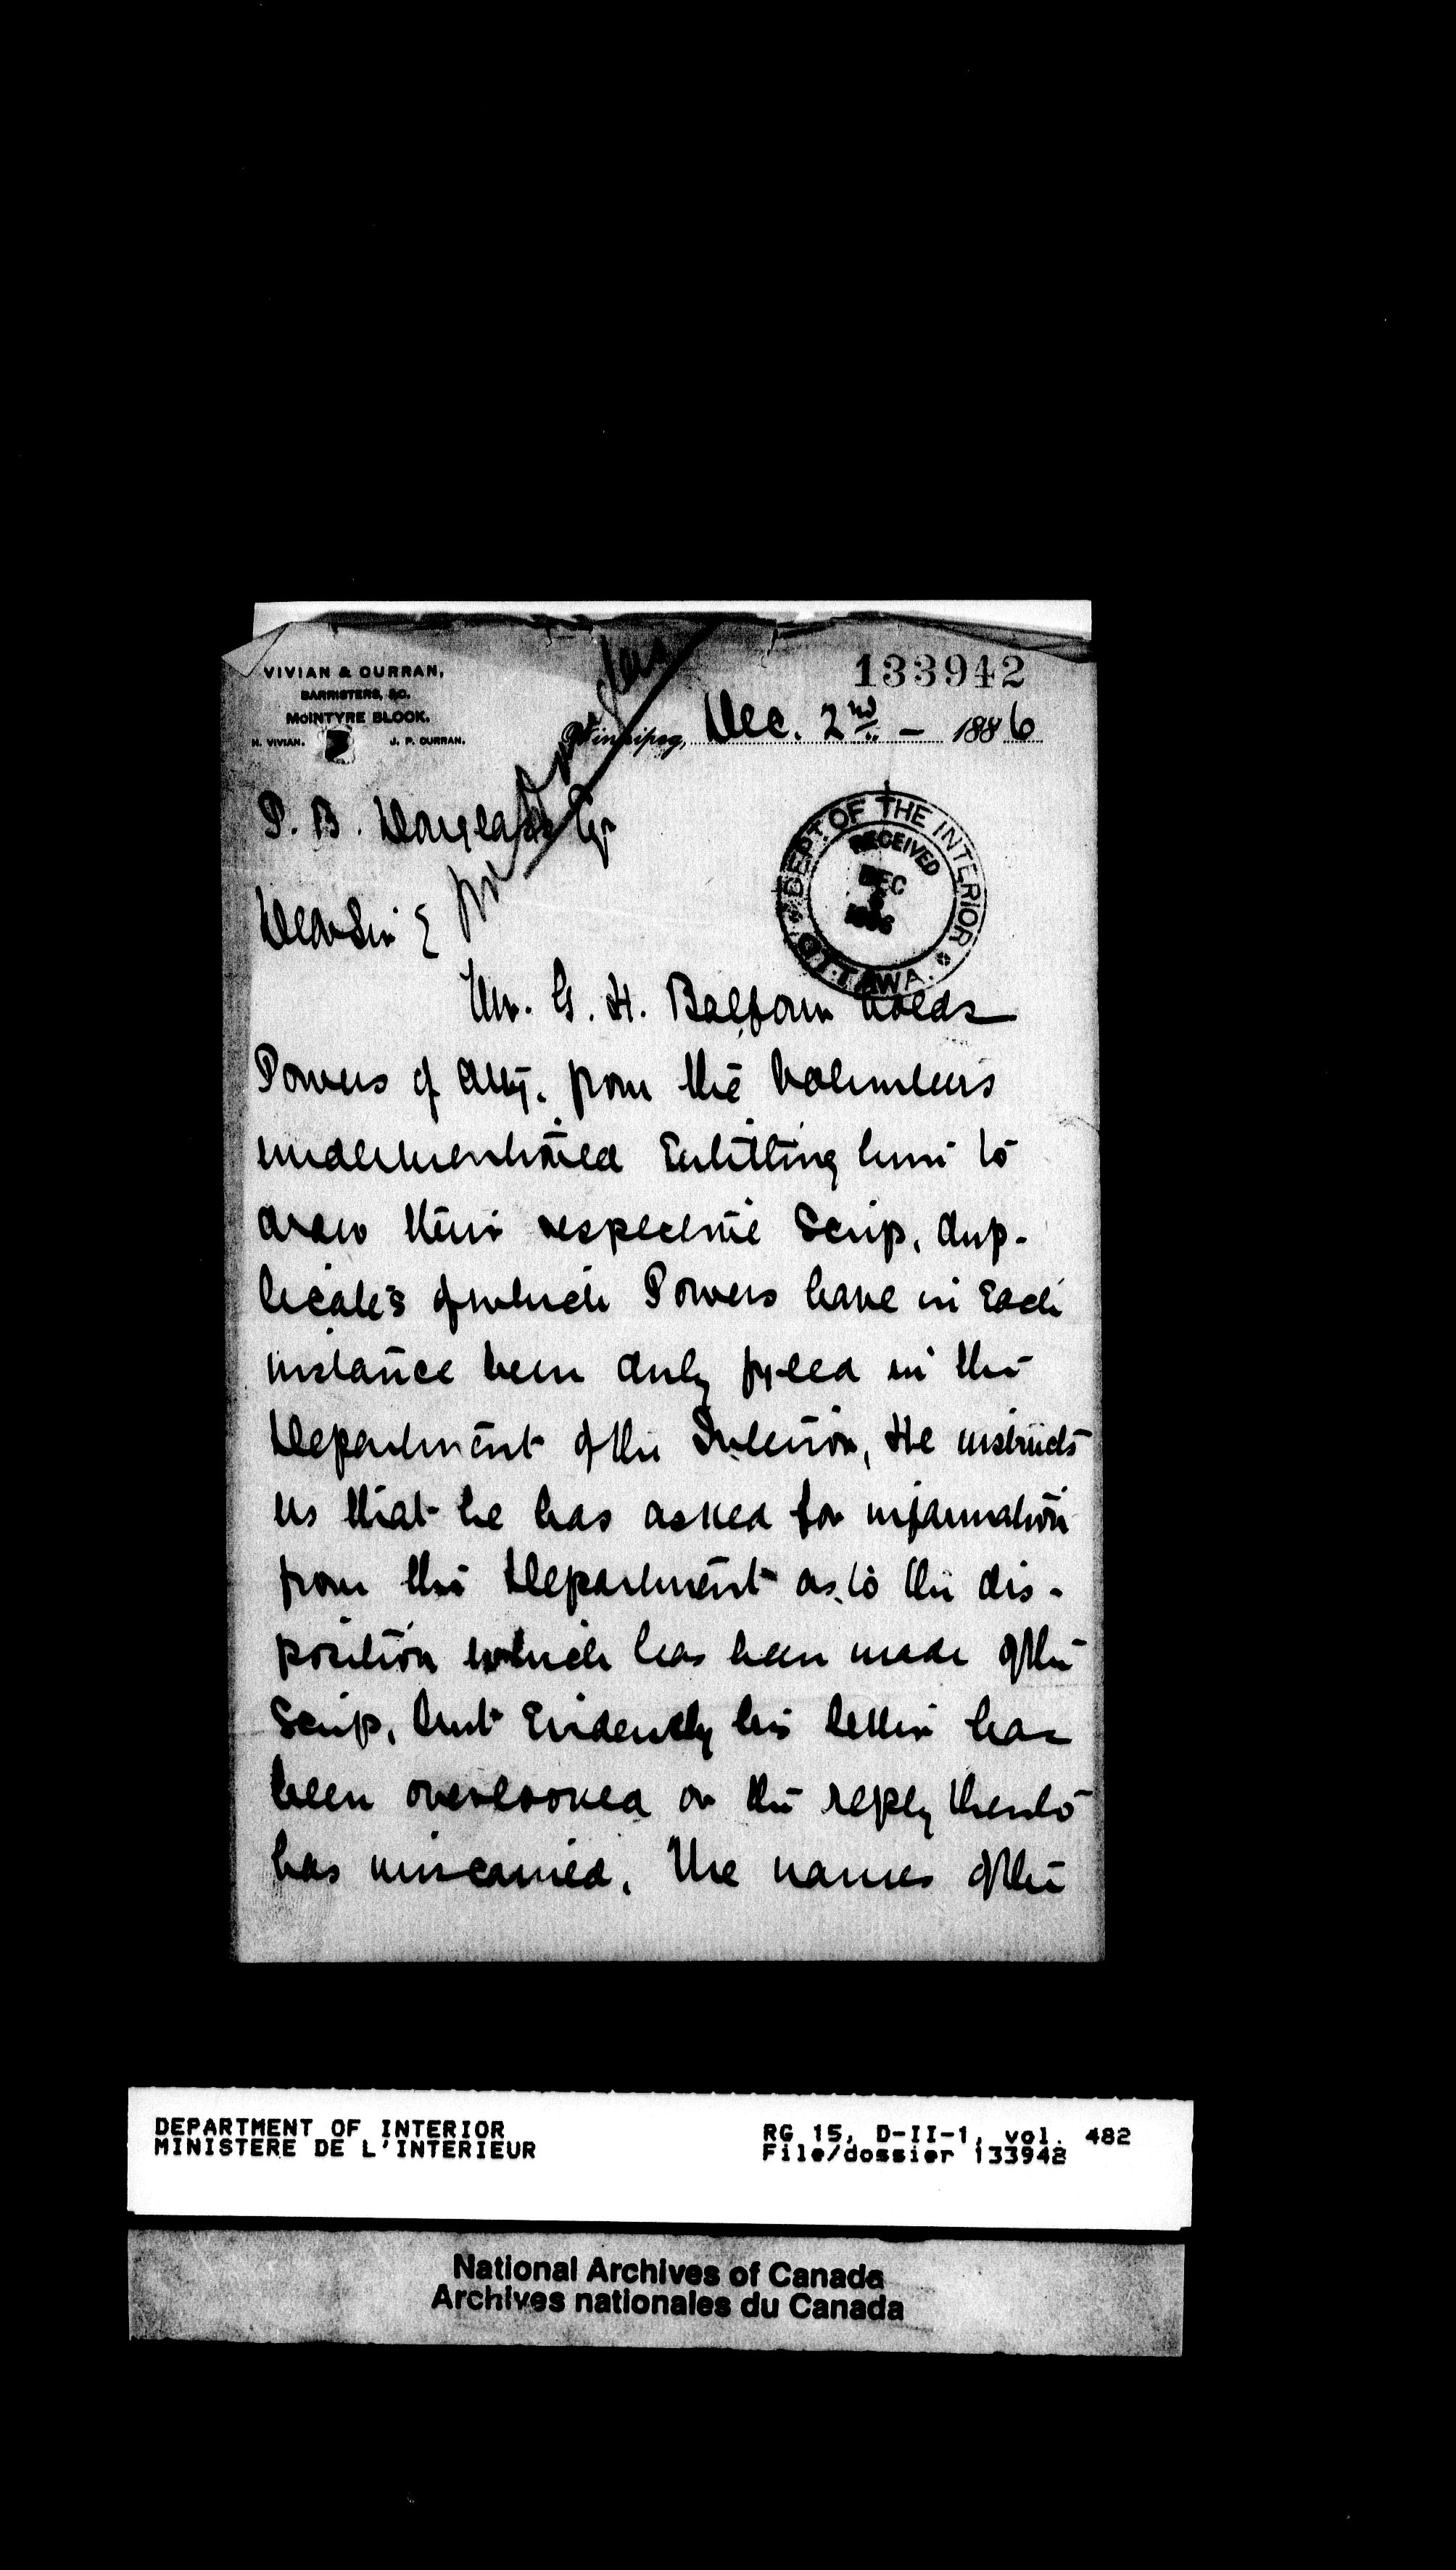 133942
VIVIAN & CURRAN,
BARRISTERS, &C.
McINTYRE BLOCK.
H. VIVIAN. J. P. CURRAN.
Winnipeg, Dec. 2nd - 1886
P. B. Douglass Esqr
Dear Sir
DEPT. OF THE INTERIOR
OTTAWA.
RECEIVED
DEC
6
1886
Mr. G. H. Balfour holds
Powers of Atty. from the Volunteers
undermentioned Entitling him to
draw their respective Scrip, dup-
licates of which Powers have in Each
instance been duly fyled in the
Department of the Interior, He instructs
us that he has asked for information
from the Department as to the dis-
position which has been made of the
Scrip, but Evidently his letter has
been overlooked or the reply thereto
has miscarried. The names of the
DEPARTMENT OF INTERIOR
MINISTERE DE L'INTERIEUR
RG 15, D-II-1, vol. 482
File/dossier 133942
National Archives of Canada
Archives nationales du Canada